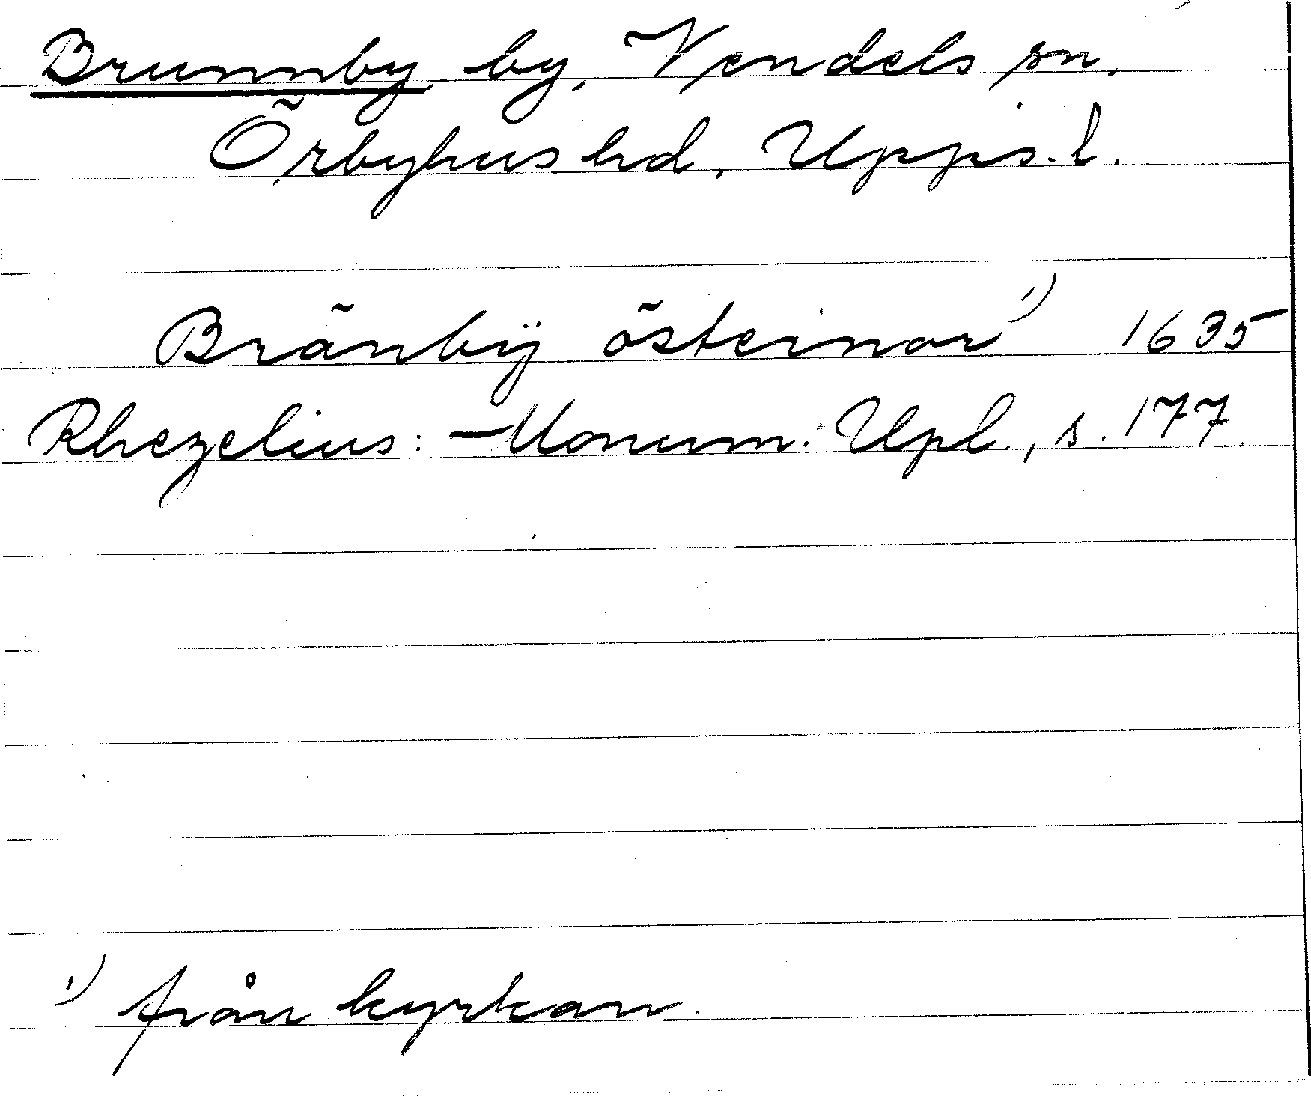 Brunnby by, Vendels sn.
Örbyhus hd, Upps. l.
Bränbÿ östernor ¹) 1635
Rhezelius: Monum. Upl., s. 177.
¹) från kyrkan.